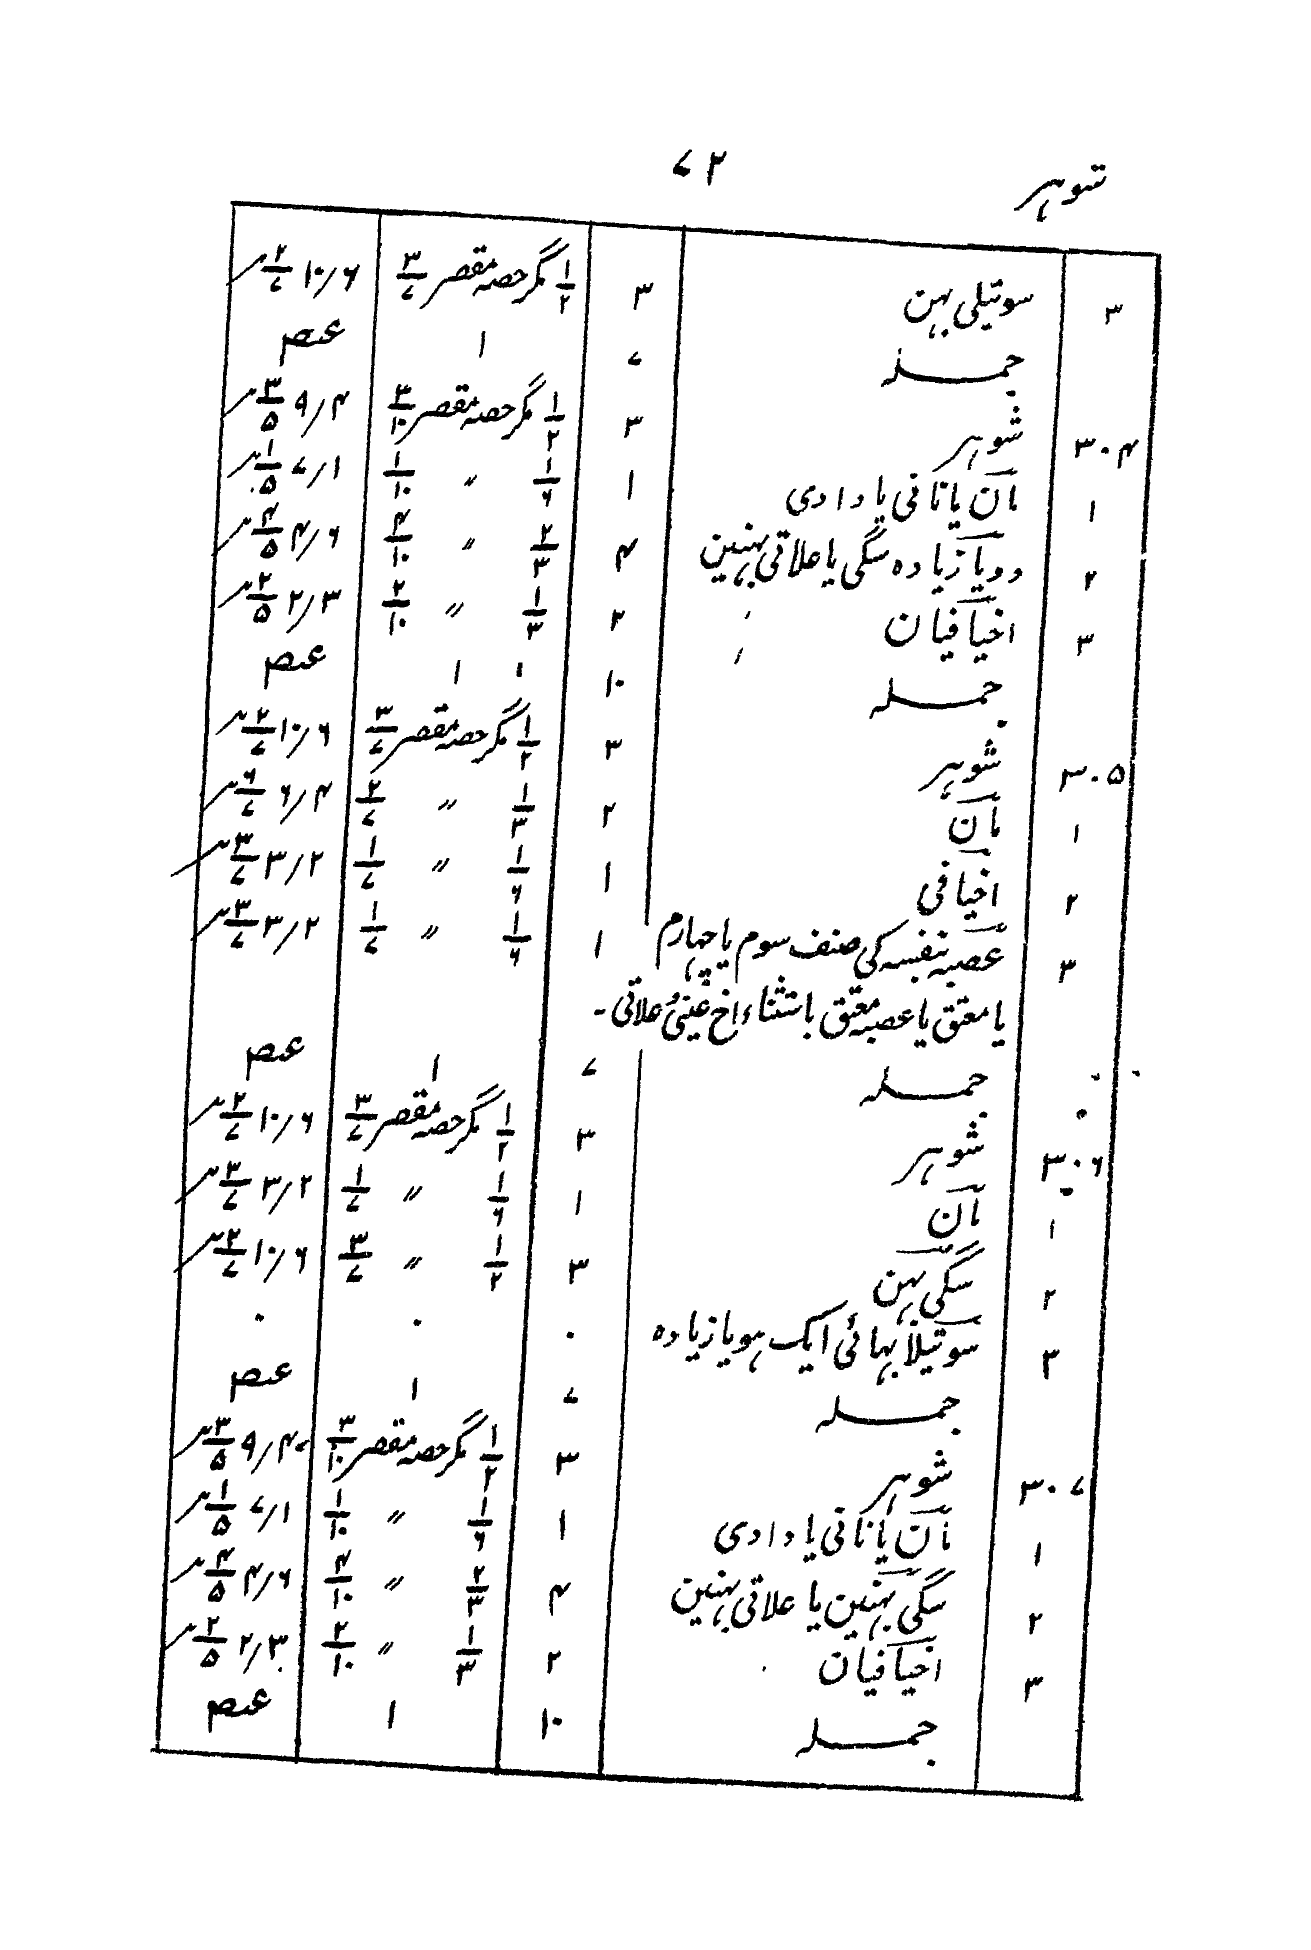 شوہر ۷۲
۳ سوتیلی بہن ۳ ۱/۲ مگر حصہ مقصر ۳/۷ ۱۰/۶ ۲/۷
جملہ ۷ ۱ عصہ
۳۰۴ شوہر ۳ ۱/۲ مگر حصہ مقصر ۳/۱۰ ۹/۴ ۳/۵
۱ مان یا نانی یا دادی ۱ ۱/۶ 〃 ۱/۱۰ ۷/۱ ۱/۵
۲ دو یا زیادہ سگی یا علاتی بہنین ۴ ۲/۳ 〃 ۴/۱۰ ۴/۶ ۴/۵
۳ اخیافیان ۲ ۱/۳ 〃 ۲/۱۰ ۲/۳ ۲/۵
جملہ ۱۰ ۱ عصہ
۳۰۵ شوہر ۳ ۱/۲ مگر حصہ مقصر ۳/۷ ۱۰/۶ ۲/۷
۱ مان ۲ ۱/۳ 〃 ۲/۷ ۶/۴ ۶/۷
۲ اخیافی ۱ ۱/۶ 〃 ۱/۷ ۳/۲ ۳/۷
۳ عصبہ بنفسہ کی صنف سوم یا چہارم ۱ ۱/۶ 〃 ۱/۷ ۳/۲ ۳/۷
یا معتق یا عصبہ معتق باستثناء اخ عینی و علاتی ۔
جملہ ۷ ۱ عصہ
۳۰۶ شوہر ۳ ۱/۲ مگر حصہ مقصر ۳/۷ ۱۰/۶ ۲/۷
۱ مان ۱ ۱/۶ 〃 ۱/۷ ۳/۲ ۳/۷
۲ سگی بہن ۳ ۱/۲ 〃 ۳/۷ ۱۰/۶ ۲/۷
۳ سوتیلا بہائی ایک ہو یا زیادہ ۰ ۰ ۰
جملہ ۷ ۱ عصہ
۳۰۷ شوہر ۳ ۱/۲ مگر حصہ مقصر ۳/۱۰ ۹/۴ ۳/۵
۱ مان یا نانی یا دادی ۱ ۱/۶ 〃 ۱/۱۰ ۷/۱ ۱/۵
۲ سگی بہنین یا علاتی بہنین ۴ ۲/۳ 〃 ۴/۱۰ ۴/۶ ۴/۵
۳ اخیافیان ۲ ۱/۳ 〃 ۲/۱۰ ۲/۳ ۲/۵
جملہ ۱۰ ۱ عصہ